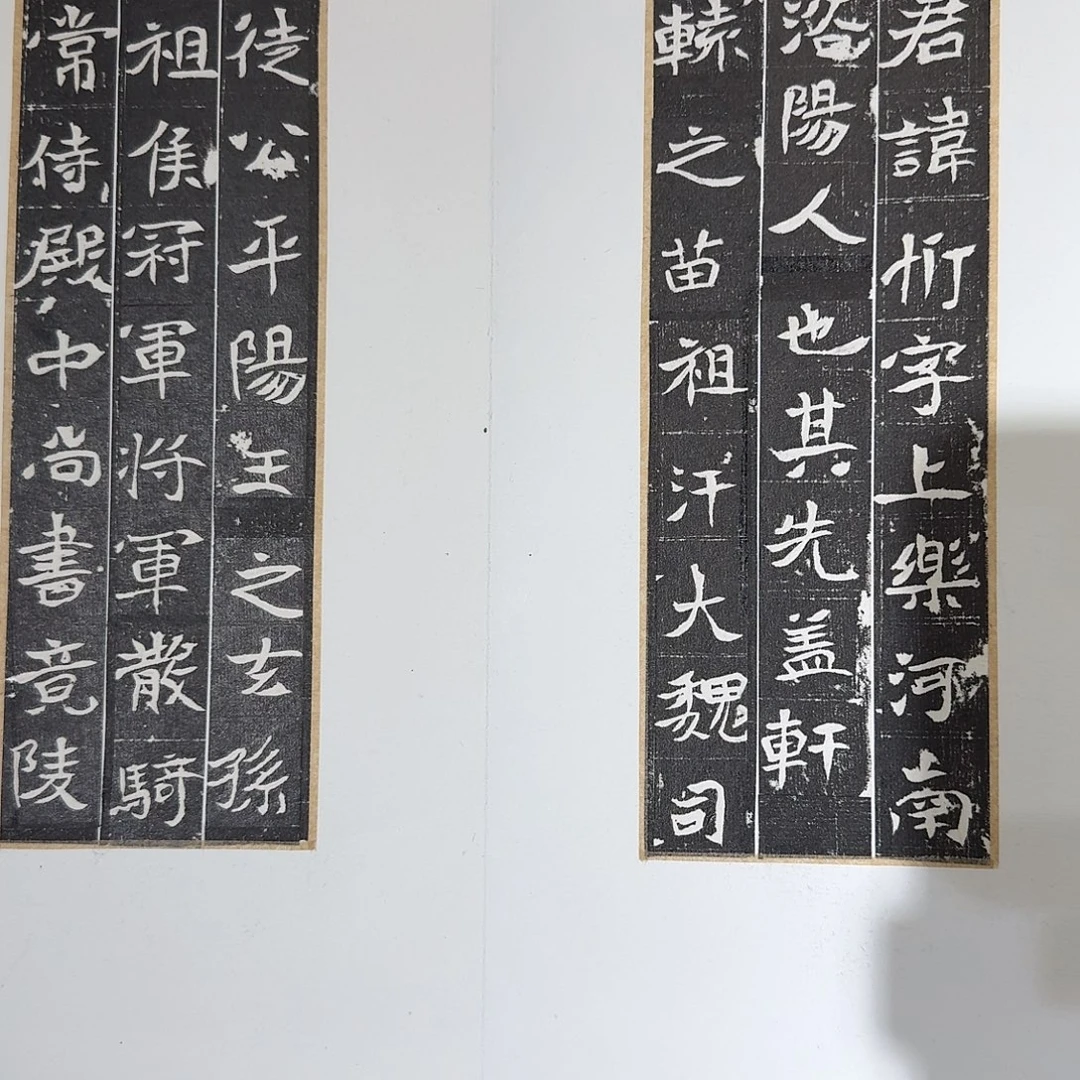 君諱字上樂河南
洛陽人也其先盖軒
轅之苗祖汗大魏司
徒公平陽王之玄孫
祖侯冠軍将軍散騎
常侍殿中尚書竟陵